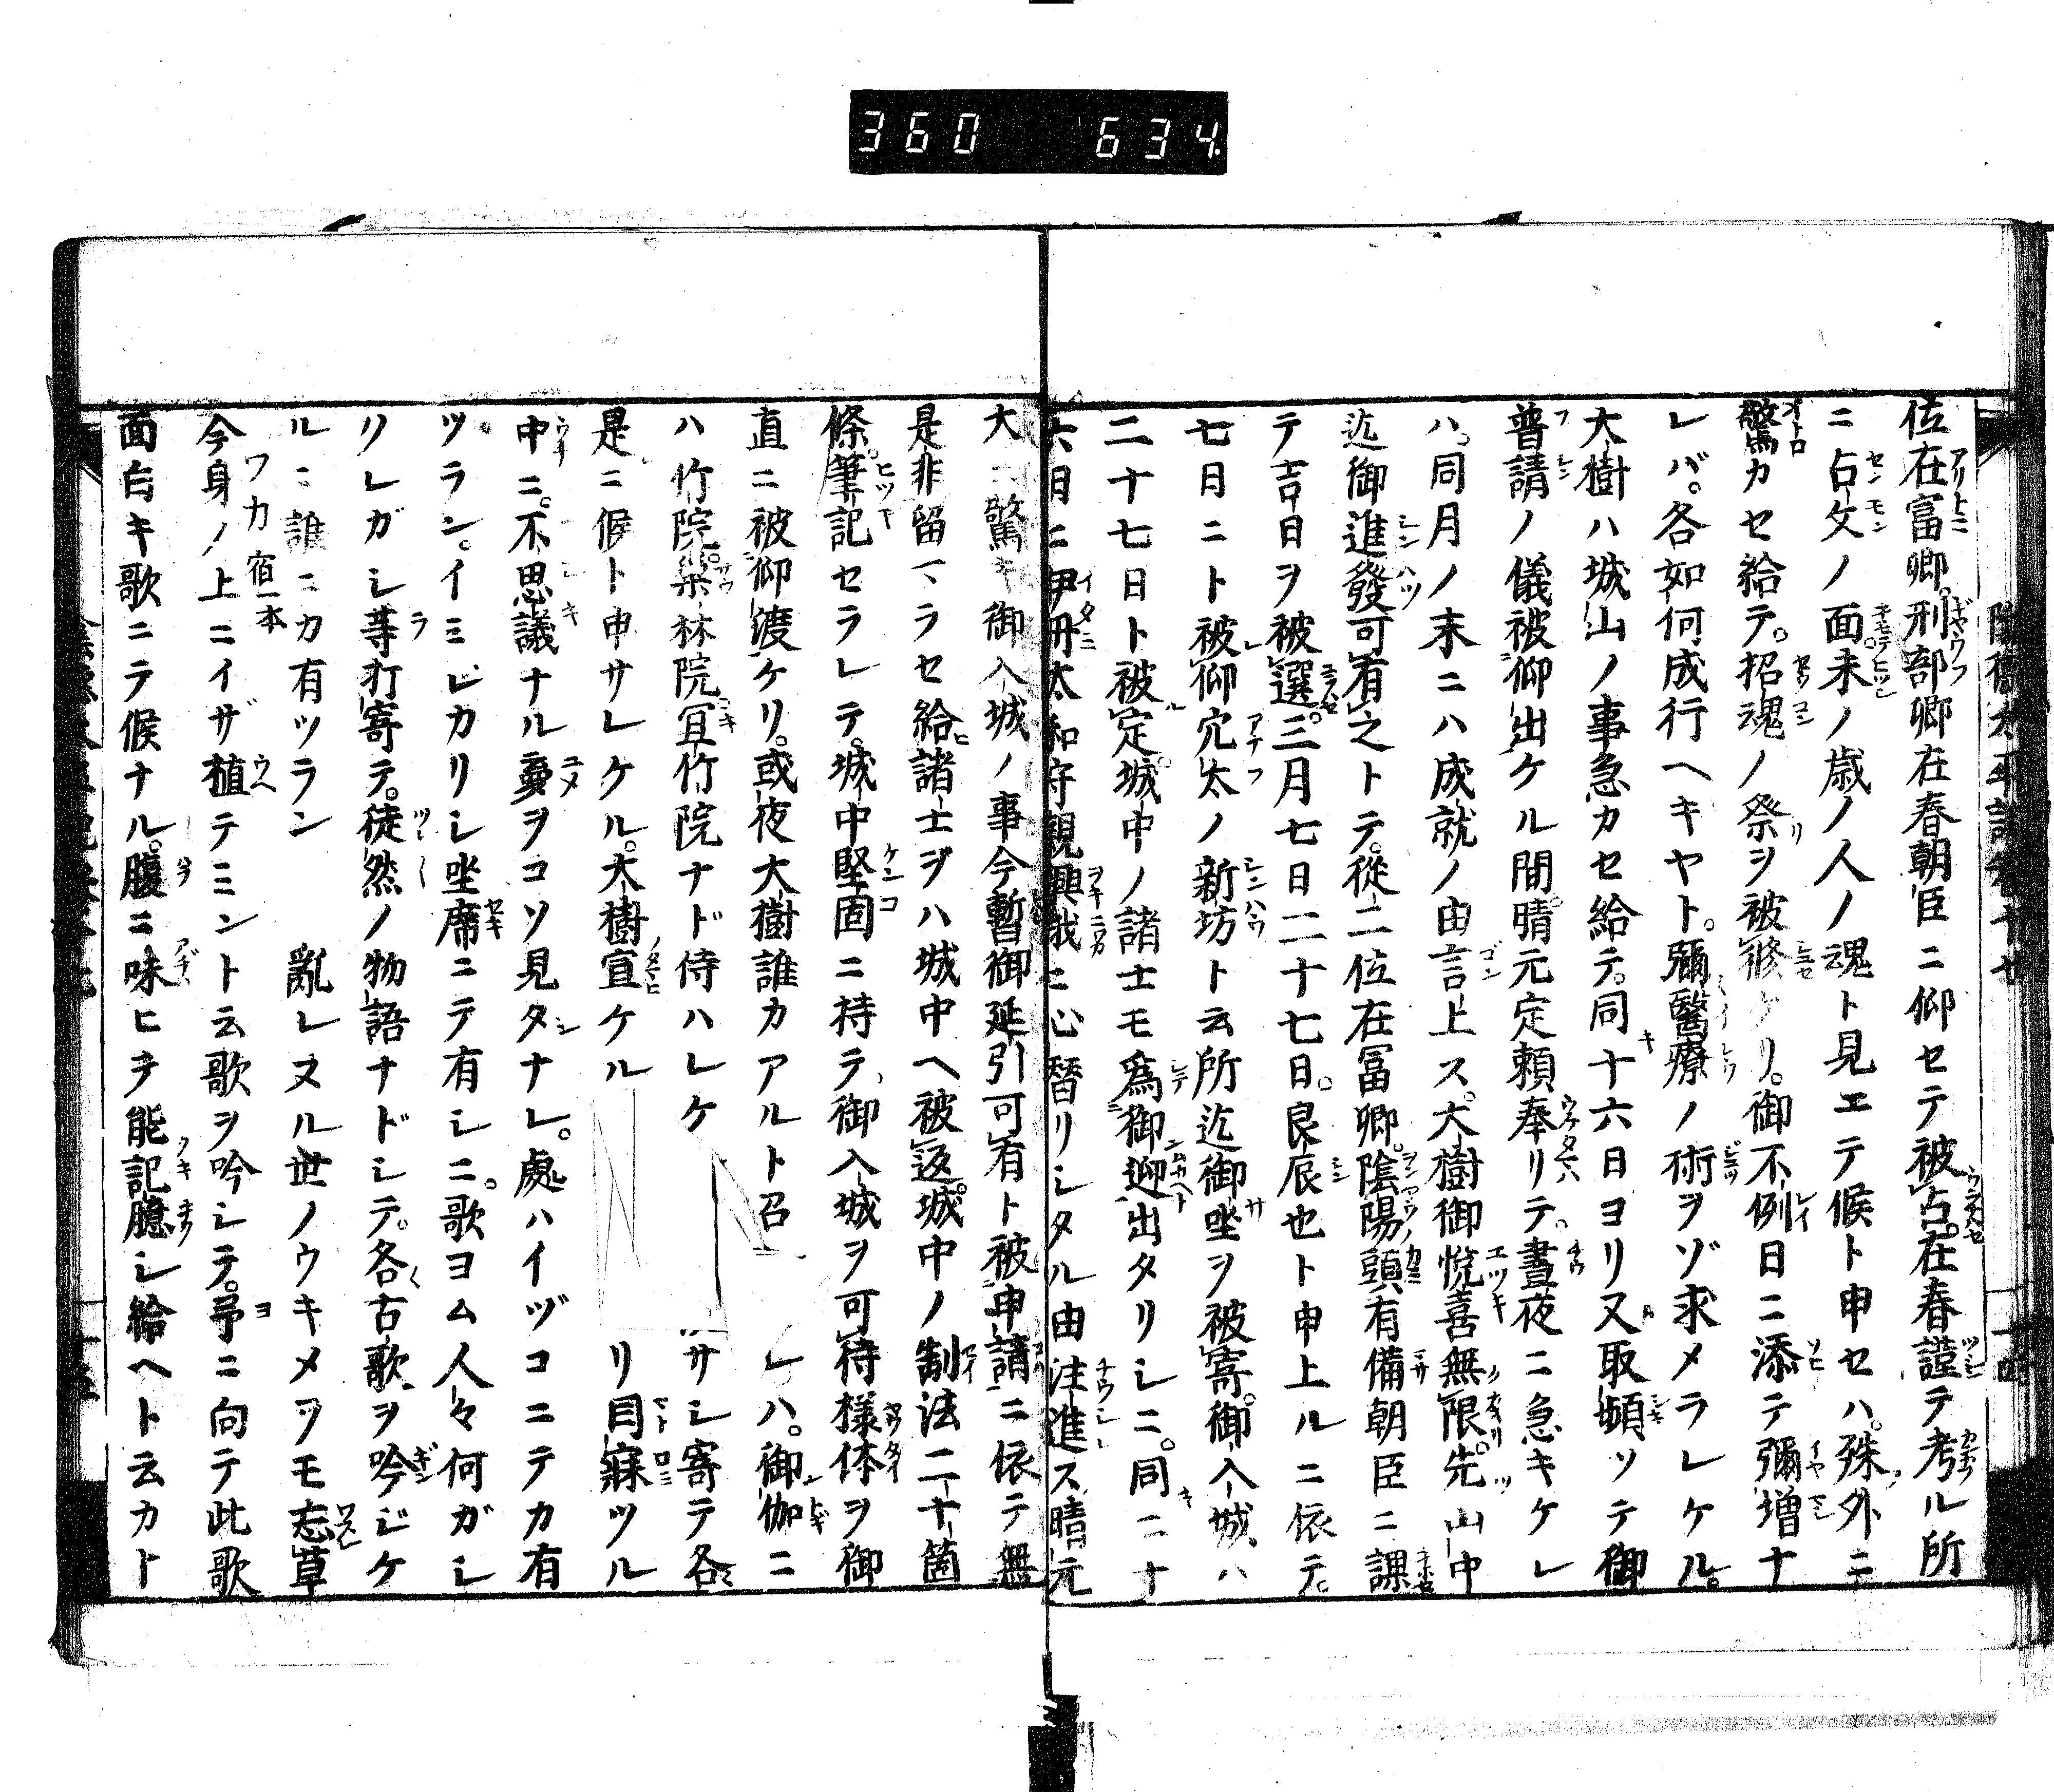 360 634
位在富卿。刑部卿在春朝臣ニ仰セテ被占。在春謹テ考ル所
ニ占文ノ面未ノ歳ノ人ノ魂ト見エテ候ト申セハ。殊外ニ
驚カセ給テ。招魂ノ祭ヲ被修ケリ。御不例日ニ添テ彌増ナ
レバ。各如何成行ヘキヤト。彌醫療ノ術ヲゾ求メラレケル。
大樹ハ城山ノ事急カセ給テ。同十六日ヨリ又取頻ツテ御
普請ノ儀被仰出ケル間。晴元定頼奉リテ。晝夜ニ急キケレ
ハ。同月ノ末ニハ成就ノ由言上ス。大樹御悦喜無限。先山中
迄御進發可有之トテ。從二位在冨卿。陰陽頭有備朝臣ニ課
テ吉日ヲ被選。三月七日二十七日。良辰也ト申上ルニ依テ。
七日ニト被仰穴太ノ新坊ト云所迄御坐ヲ被寄。御入城ハ
二十七日ト被定。城中ノ諸士モ爲御迎出タリシニ。同二十
六日ニ伊丹太和守親興我ニ心替リシタル由注進ス晴元
大ニ驚キ御入城ノ事今暫御延引可有ト被申請ニ依テ無
是非留マラセ給ヒ諸士ヲハ城中ヘ被返。城中ノ制法二十箇
條。筆記セラレテ。城中堅固ニ持テ、御入城ヲ可待様体ヲ御
直ニ被仰渡ケリ。或夜大樹誰カアルト召 レハ。御伽ニ
ハ竹院。梁林院宜竹院ナド侍ハレケ サシ寄テ各
是ニ候ト申サレケル。大樹宣ケル リ目寐ツル
中ニ。不思議ナル夢ヲコソ見タナレ。處ハイヅコニテカ有
ツラン。イミジカリシ坐席ニテ有シニ。歌ヨム人々何ガシ
リレガシ等打寄テ。徒然ノ物語ナドシテ。各古歌ヲ吟ジケ
ルニ誰ニカ有ツラン 亂レヌル世ノウキメヲモ志草
ワカ宿一本
今身ノ上ニイザ植テミント云歌ヲ吟シテ。予ニ向テ此歌
面白キ歌ニテ候ナル。腹ニ味ヒヲ能記臆シ給ヘト云カト